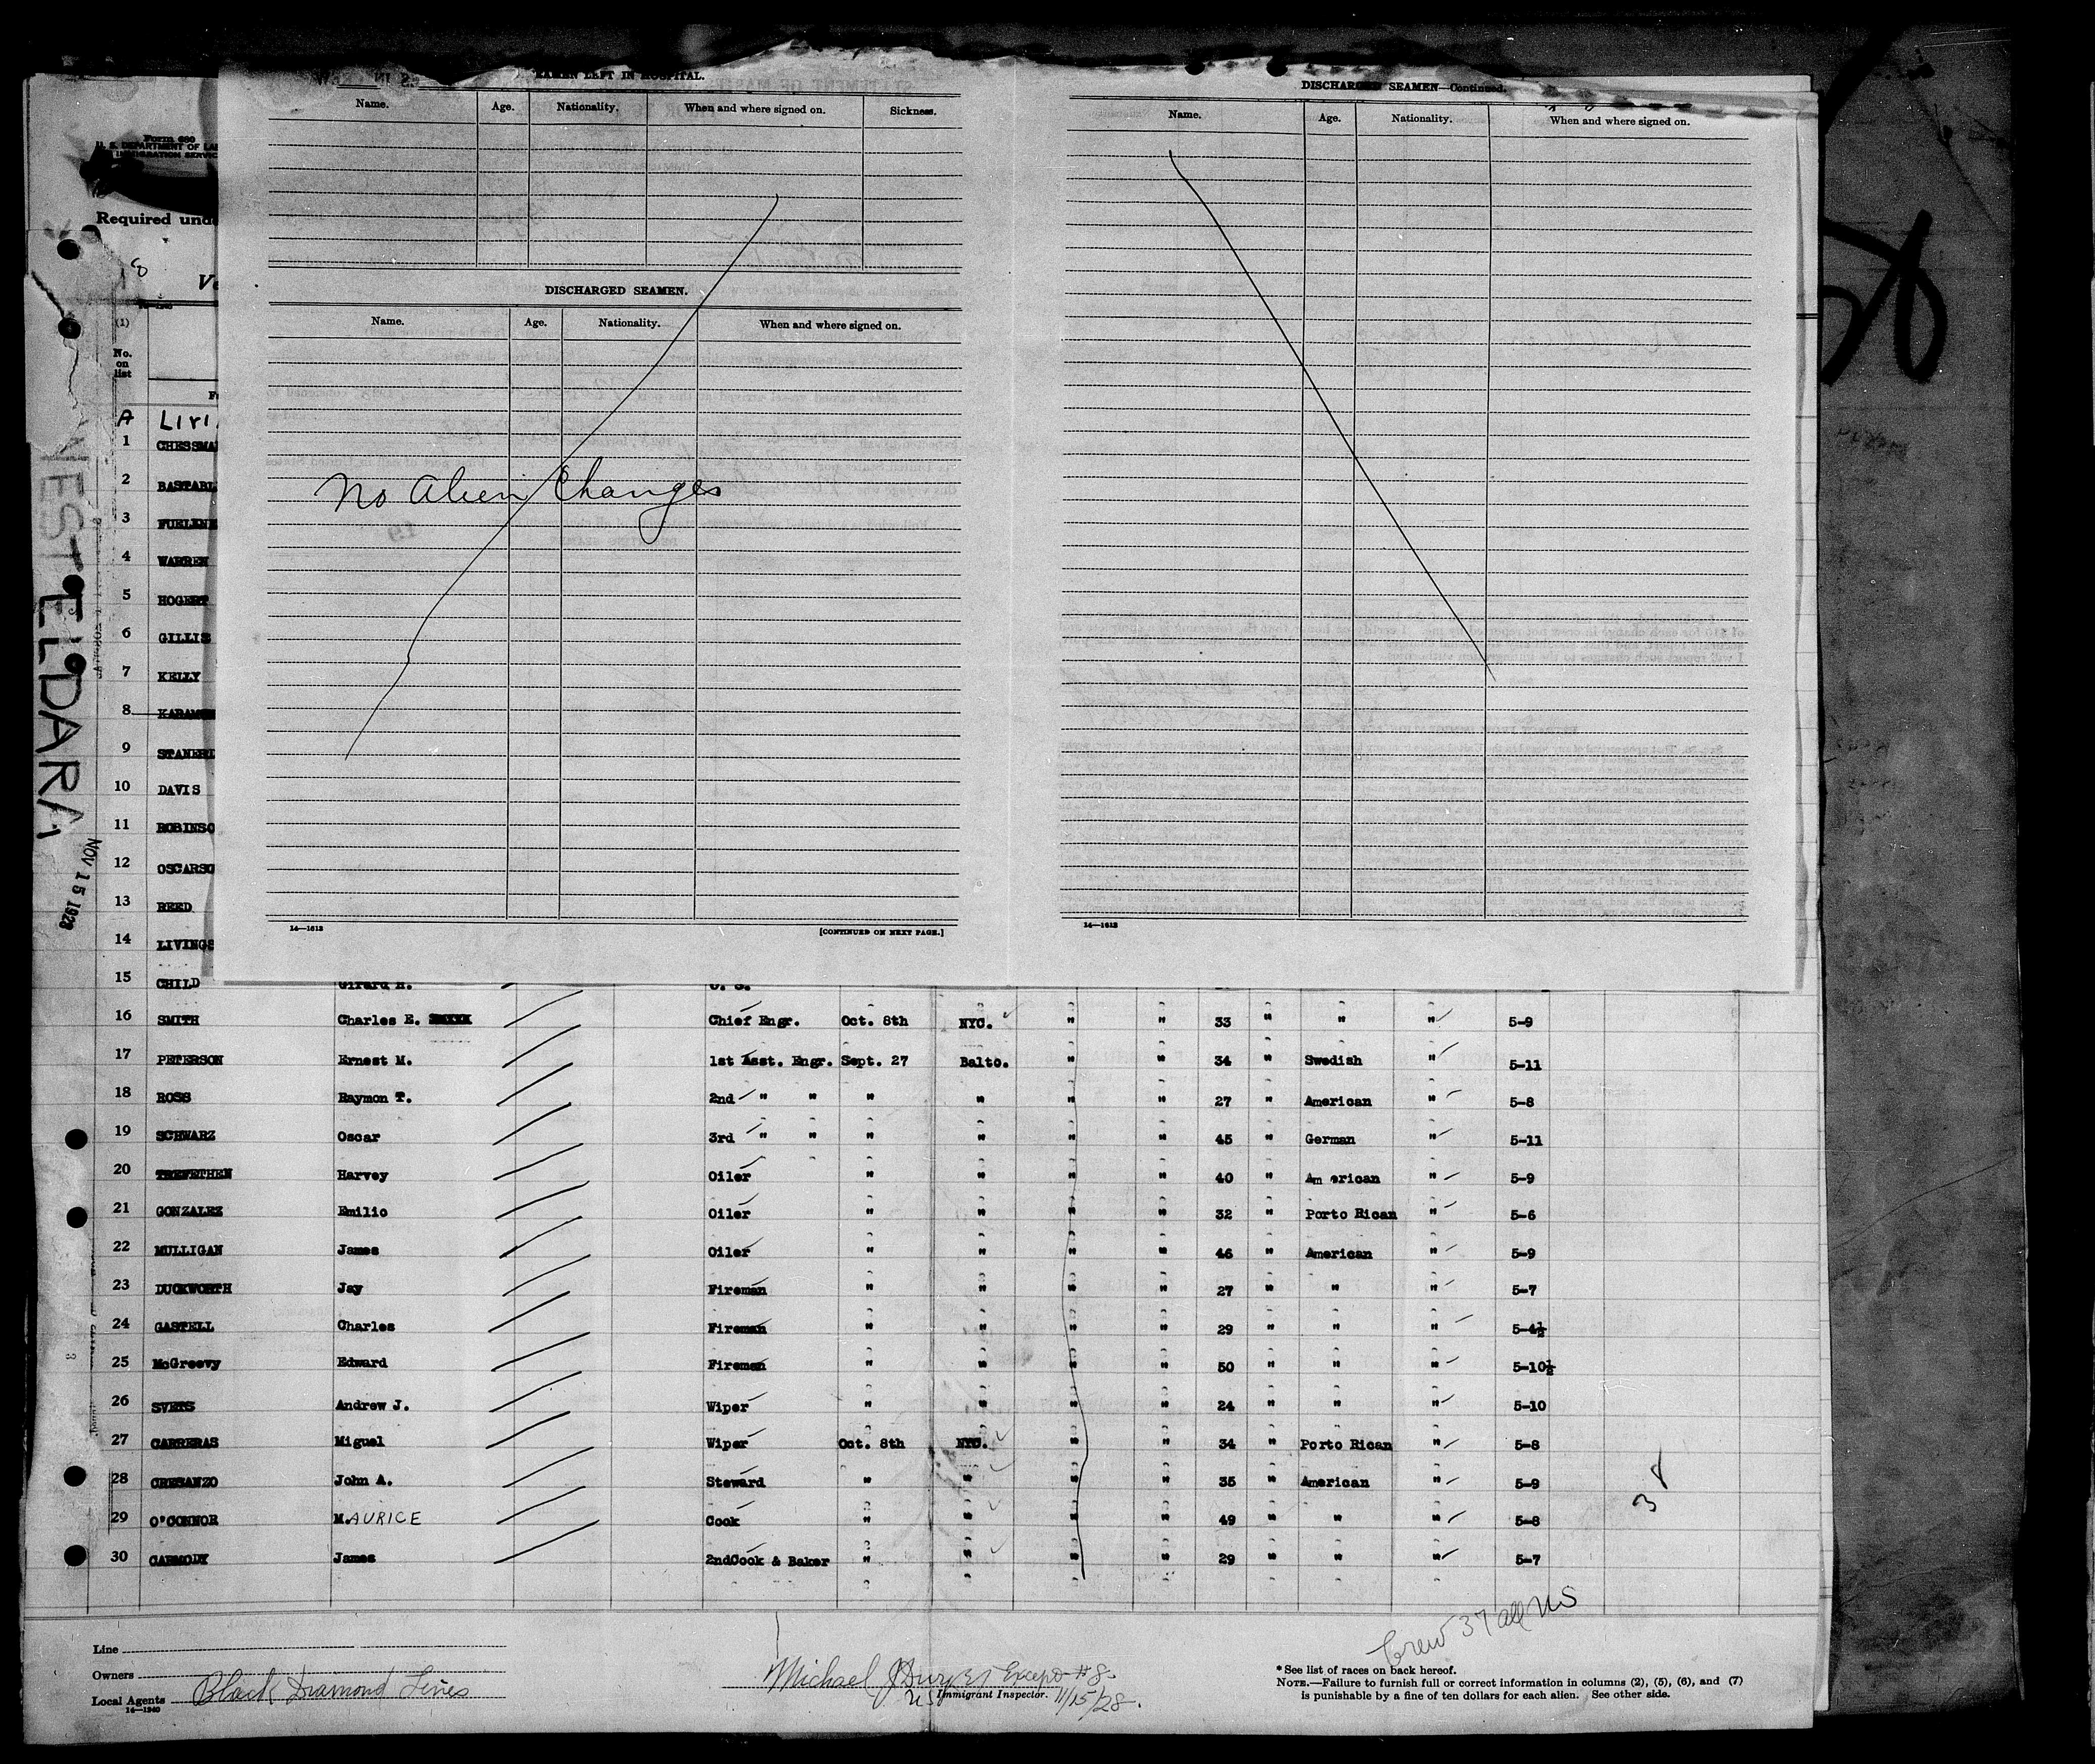 SEAMEN LEFT IN HOSPITAL.
Name. Age. Nationality. When and where signed on. Sickness.
DISCHARGED SEAMEN.
Name. Age. Nationality. When and where signed on.
No Alien Changes
14—1613 [CONTINUED ON NEXT PAGE.]
DISCHARGED SEAMEN—Continued.
Name. Age. Nationality. When and where signed on.
14—1613
Form 680
U. S. DEPARTMENT OF LA
IMMIGRATION SERVIC
Required unde
18
(1)
No. on list
WEST ELDARA
NOV 15 1928
A
1 CHESSMA
2 BASTABL
3
4 WARREN
5 HOGERT
6 GILLIS
7 KELLY
8
9
10 DAVIS
11 ROBINSO
12 OSCARSO
13 REED
14 LIVINGS
15 CHILD Girard H.
16 SMITH Charles E. Chief Engr. Oct. 8th NYC. " " 33 " " " 5-9
17 PETERSON Ernest M. 1st Asst. Engr. Sept. 27 Balto. " " 34 " Swedish " 5-11
18 ROSS Raymon T. 2nd " " " " " " 27 " American " 5-8
19 SCHWARZ Oscar 3rd " " " " " " 45 " German " 5-11
20 TREFETHEN Harvey Oiler " " " " 40 " Am erican " 5-9
21 GONZALEZ Emilio Oiler " " " " 32 " Porto Rican " 5-6
22 MULLIGAN James Oiler " " " " 46 " American " 5-9
23 DUCKWORTH Jay Fireman " " " " 27 " " " 5-7
24 GASTELL Charles Fireman " " " " 29 " " " 5-4½
25 McGreevy Edward Fireman " " " " 50 " " " 5-10½
26 SVETS Andrew J. Wiper " " " " 24 " " " 5-10
27 CARRERAS Miguel Wiper Oct. 8th NYC. " " 34 " Porto Rican " 5-8
28 CRESANZO John A. Steward " " " " 35 " American " 5-9
29 O'CONNOR MAURICE Cook " " " " 49 " " " 5-8
30 CARMODY James 2ndCook & Baker " " " " 29 " " " 5-7
38
Crew 37 all US
Line
Owners
Local Agents Black Diamond Lines
14—1240
Michael Except #8.
US Immigrant Inspector. 11/15/28.
* See list of races on back hereof.
NOTE.—Failure to furnish full or correct information in columns (2), (5), (6), and (7)
is punishable by a fine of ten dollars for each alien. See other side.